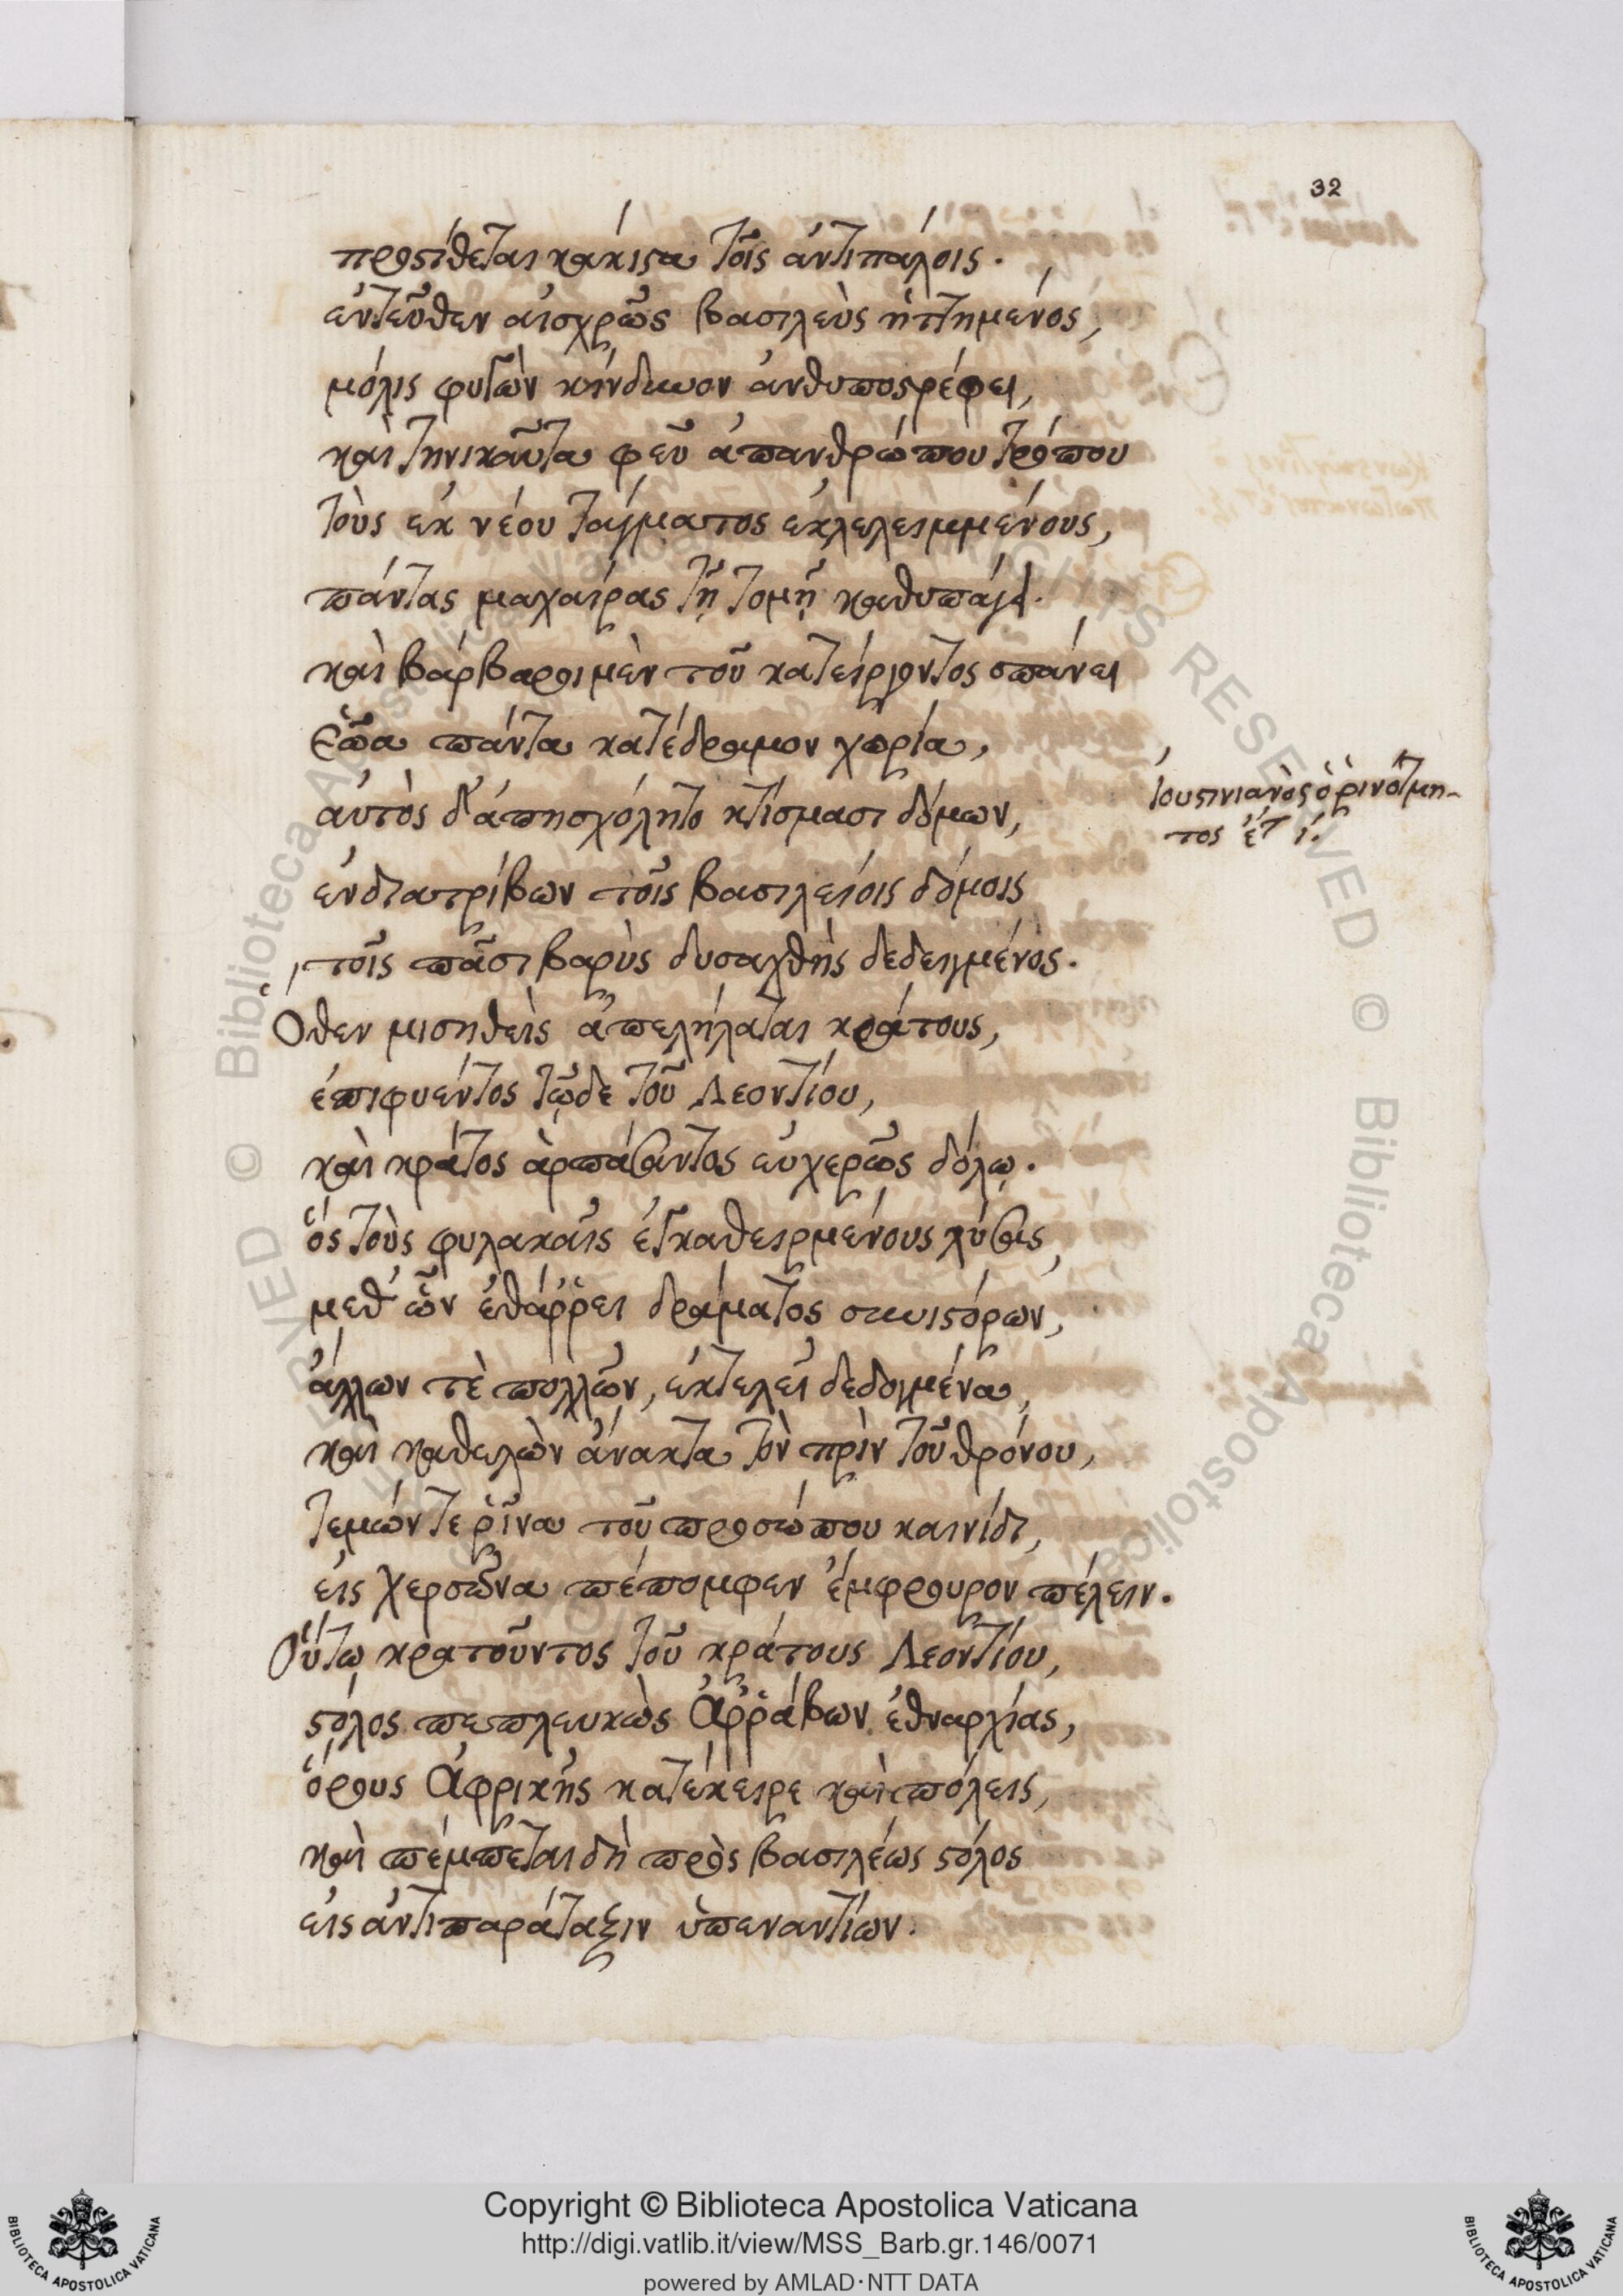 32
προστίθεται κάκιστα τοῖς ἀντιπάλοις.
ἐντεῦθεν αἰσχρῶς βασιλεὺς ἡττημένος,
μόλις φυγὼν κίνδυνον ἀνθυποστρέφει,
καὶ τηνικαῦτα φεῦ ἀπανθρώπου τρόπου
τοὺς ἐκ νέου τάγματος ἐκλελειμμένους,
πάντας μαχαίρας τῇ τομῇ καθυπάγει.
καὶ βάρβαροι μὲν τοῦ κατείργοντος σπάνει
ἑῶα πάντα κατέδραμον χωρία,
αὐτὸς δ' ἀπησχόλητο κτίσμασι δόμων,
ἐνδιατρίβων τοῖς βασιλείοις δόμοις
τοῖς πᾶσι βαρὺς δυσαχθὴς δεδειγμένος.
Ὅθεν μισηθεὶς ἀπελήλαται κράτους,
ἐπιφυέντος τῷδε τοῦ Λεοντίου,
καὶ κράτος ἁρπάσαντος εὐχερῶς δόλῳ.
ὃς τοὺς φυλακαῖς ἐγκαθειρμένους λύσας,
μεθ' ὧν ἐθάῤῥει δράματος συνιστόρων,
ἄλλων τὲ πολλῶν, ἐκτελεῖ δεδογμένα,
καὶ καθελὼν ἄνακτα τὸν πρὶν τοῦ θρόνου,
τεμών τε ῥῖνα τοῦ προσώπου κοπίδι,
εἰς Χερσῶνα πέπομφεν ἔμφρουρον πέλειν.
Οὕτω κρατοῦντος τοῦ κράτους Λεοντίου,
στόλος πεπλευκὼς Ἀῤῥάβων ἐθναρχίας,
ὅρους Ἀφρικῆς κατέκειρε καὶ πόλεις,
καὶ πέμπεται δὴ πρὸς βασιλέως στόλος
εἰς ἀντιπαράταξιν ὑπεναντίων.
Ἰουστινιανὸς ὁ ῥινότμη-
τος ἔτ ι.
Copyright © Biblioteca Apostolica Vaticana
http://digi.vatlib.it/view/MSS_Barb.gr.146/0071
powered by AMLAD·NTT DATA
BIBLIOTECA APOSTOLICA VATICANA
BIBLIOTECA APOSTOLICA VATICANA